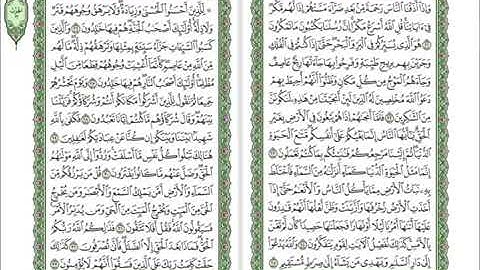 وَإِذَآ أَذَقْنَا ٱلنَّاسَ رَحْمَةً مِّنۢ بَعْدِ ضَرَّآءَ مَسَّتْهُمْ إِذَا لَهُم مَّكْرٌ
فِىٓ ءَايَاتِنَا قُلِ ٱللَّهُ أَسْرَعُ مَكْرًا إِنَّ رُسُلَنَا يَكْتُبُونَ مَا تَمْكُرُونَ ٢١
هُوَ ٱلَّذِى يُسَيِّرُكُمْ فِى ٱلْبَرِّ وَٱلْبَحْرِ حَتَّىٰٓ إِذَا كُنتُمْ فِى ٱلْفُلْكِ
وَجَرَيْنَ بِهِم بِرِيحٍ طَيِّبَةٍ وَفَرِحُوا۟ بِهَا جَآءَتْهَا رِيحٌ عَاصِفٌ
وَجَآءَهُمُ ٱلْمَوْجُ مِن كُلِّ مَكَانٍ وَظَنُّوٓا۟ أَنَّهُمْ أُحِيطَ بِهِمْ
دَعَوُا۟ ٱللَّهَ مُخْلِصِينَ لَهُ ٱلدِّينَ لَئِنْ أَنجَيْتَنَا مِنْ هَٰذِهِۦ لَنَكُونَنَّ
مِنَ ٱلشَّٰكِرِينَ ٢٢ فَلَمَّآ أَنجَىٰهُمْ إِذَا هُمْ يَبْغُونَ فِى ٱلْأَرْضِ بِغَيْرِ
ٱلْحَقِّ يَٰٓأَيُّهَا ٱلنَّاسُ إِنَّمَا بَغْيُكُمْ عَلَىٰٓ أَنفُسِكُم مَّتَٰعَ ٱلْحَيَوٰةِ
ٱلدُّنْيَا ثُمَّ إِلَيْنَا مَرْجِعُكُمْ فَنُنَبِّئُكُم بِمَا كُنتُمْ تَعْمَلُونَ ٢٣
إِنَّمَا مَثَلُ ٱلْحَيَوٰةِ ٱلدُّنْيَا كَمَآءٍ أَنزَلْنَٰهُ مِنَ ٱلسَّمَآءِ فَٱخْتَلَطَ
بِهِۦ نَبَاتُ ٱلْأَرْضِ مِمَّا يَأْكُلُ ٱلنَّاسُ وَٱلْأَنْعَٰمُ حَتَّىٰٓ إِذَآ
أَخَذَتِ ٱلْأَرْضُ زُخْرُفَهَا وَٱزَّيَّنَتْ وَظَنَّ أَهْلُهَآ أَنَّهُمْ قَٰدِرُونَ
عَلَيْهَآ أَتَىٰهَآ أَمْرُنَا لَيْلًا أَوْ نَهَارًا فَجَعَلْنَٰهَا حَصِيدًا كَأَن لَّمْ تَغْنَ
بِٱلْأَمْسِ كَذَٰلِكَ نُفَصِّلُ ٱلْءَايَٰتِ لِقَوْمٍ يَتَفَكَّرُونَ ٢٤ وَٱللَّهُ يَدْعُوٓا۟
إِلَىٰ دَارِ ٱلسَّلَٰمِ وَيَهْدِى مَن يَشَآءُ إِلَىٰ صِرَٰطٍ مُّسْتَقِيمٍ ٢٥
لِّلَّذِينَ أَحْسَنُوا۟ ٱلْحُسْنَىٰ وَزِيَادَةٌ وَلَا يَرْهَقُ وُجُوهَهُمْ قَتَرٌ
وَلَا ذِلَّةٌ أُو۟لَٰٓئِكَ أَصْحَٰبُ ٱلْجَنَّةِ هُمْ فِيهَا خَٰلِدُونَ ٢٦ وَٱلَّذِينَ
كَسَبُوا۟ ٱلسَّيِّـَٔاتِ جَزَآءُ سَيِّئَةٍۭ بِمِثْلِهَا وَتَرْهَقُهُمْ ذِلَّةٌ مَّا لَهُم
مِّنَ ٱللَّهِ مِنْ عَاصِمٍ كَأَنَّمَآ أُغْشِيَتْ وُجُوهُهُمْ قِطَعًا مِّنَ ٱلَّيْلِ
مُظْلِمًا أُو۟لَٰٓئِكَ أَصْحَٰبُ ٱلنَّارِ هُمْ فِيهَا خَٰلِدُونَ ٢٧ وَيَوْمَ نَحْشُرُهُمْ
جَمِيعًا ثُمَّ نَقُولُ لِلَّذِينَ أَشْرَكُوا۟ مَكَانَكُمْ أَنتُمْ وَشُرَكَآؤُكُمْ فَزَيَّلْنَا
بَيْنَهُمْ وَقَالَ شُرَكَآؤُهُم مَّا كُنتُمْ إِيَّانَا تَعْبُدُونَ ٢٨ فَكَفَىٰ بِٱللَّهِ
شَهِيدًۢا بَيْنَنَا وَبَيْنَكُمْ إِن كُنَّا عَنْ عِبَادَتِكُمْ لَغَٰفِلِينَ ٢٩
هُنَالِكَ تَبْلُوا۟ كُلُّ نَفْسٍ مَّآ أَسْلَفَتْ وَرُدُّوٓا۟ إِلَى ٱللَّهِ مَوْلَىٰهُمُ
ٱلْحَقِّ وَضَلَّ عَنْهُم مَّا كَانُوا۟ يَفْتَرُونَ ٣٠ قُلْ مَن يَرْزُقُكُم مِّنَ
ٱلسَّمَآءِ وَٱلْأَرْضِ أَمَّن يَمْلِكُ ٱلسَّمْعَ وَٱلْأَبْصَٰرَ وَمَن يُخْرِجُ
ٱلْحَىَّ مِنَ ٱلْمَيِّتِ وَيُخْرِجُ ٱلْمَيِّتَ مِنَ ٱلْحَىِّ وَمَن يُدَبِّرُ ٱلْأَمْرَ
فَسَيَقُولُونَ ٱللَّهُ فَقُلْ أَفَلَا تَتَّقُونَ ٣١ فَذَٰلِكُمُ ٱللَّهُ رَبُّكُمُ
ٱلْحَقُّ فَمَاذَا بَعْدَ ٱلْحَقِّ إِلَّا ٱلضَّلَٰلُ فَأَنَّىٰ تُصْرَفُونَ ٣٢ كَذَٰلِكَ
حَقَّتْ كَلِمَتُ رَبِّكَ عَلَى ٱلَّذِينَ فَسَقُوٓا۟ أَنَّهُمْ لَا يُؤْمِنُونَ ٣٣